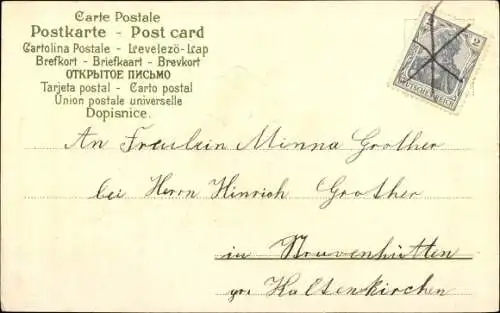 Carte Postale
Postkarte - Post card
Cartolina Postale - Levelező-Lap
Brefkort - Briefkaart - Brevkort
ОТКРЫТОЕ ПИСЬМО
Tarjeta postal - Carto postal
Union postale universelle
Dopisnice.
2
DEUTSCHES REICH
An Fräulein Minna Grother
bei Herrn Hinrich Grother
in Struvenhütten
pr. Kaltenkirchen